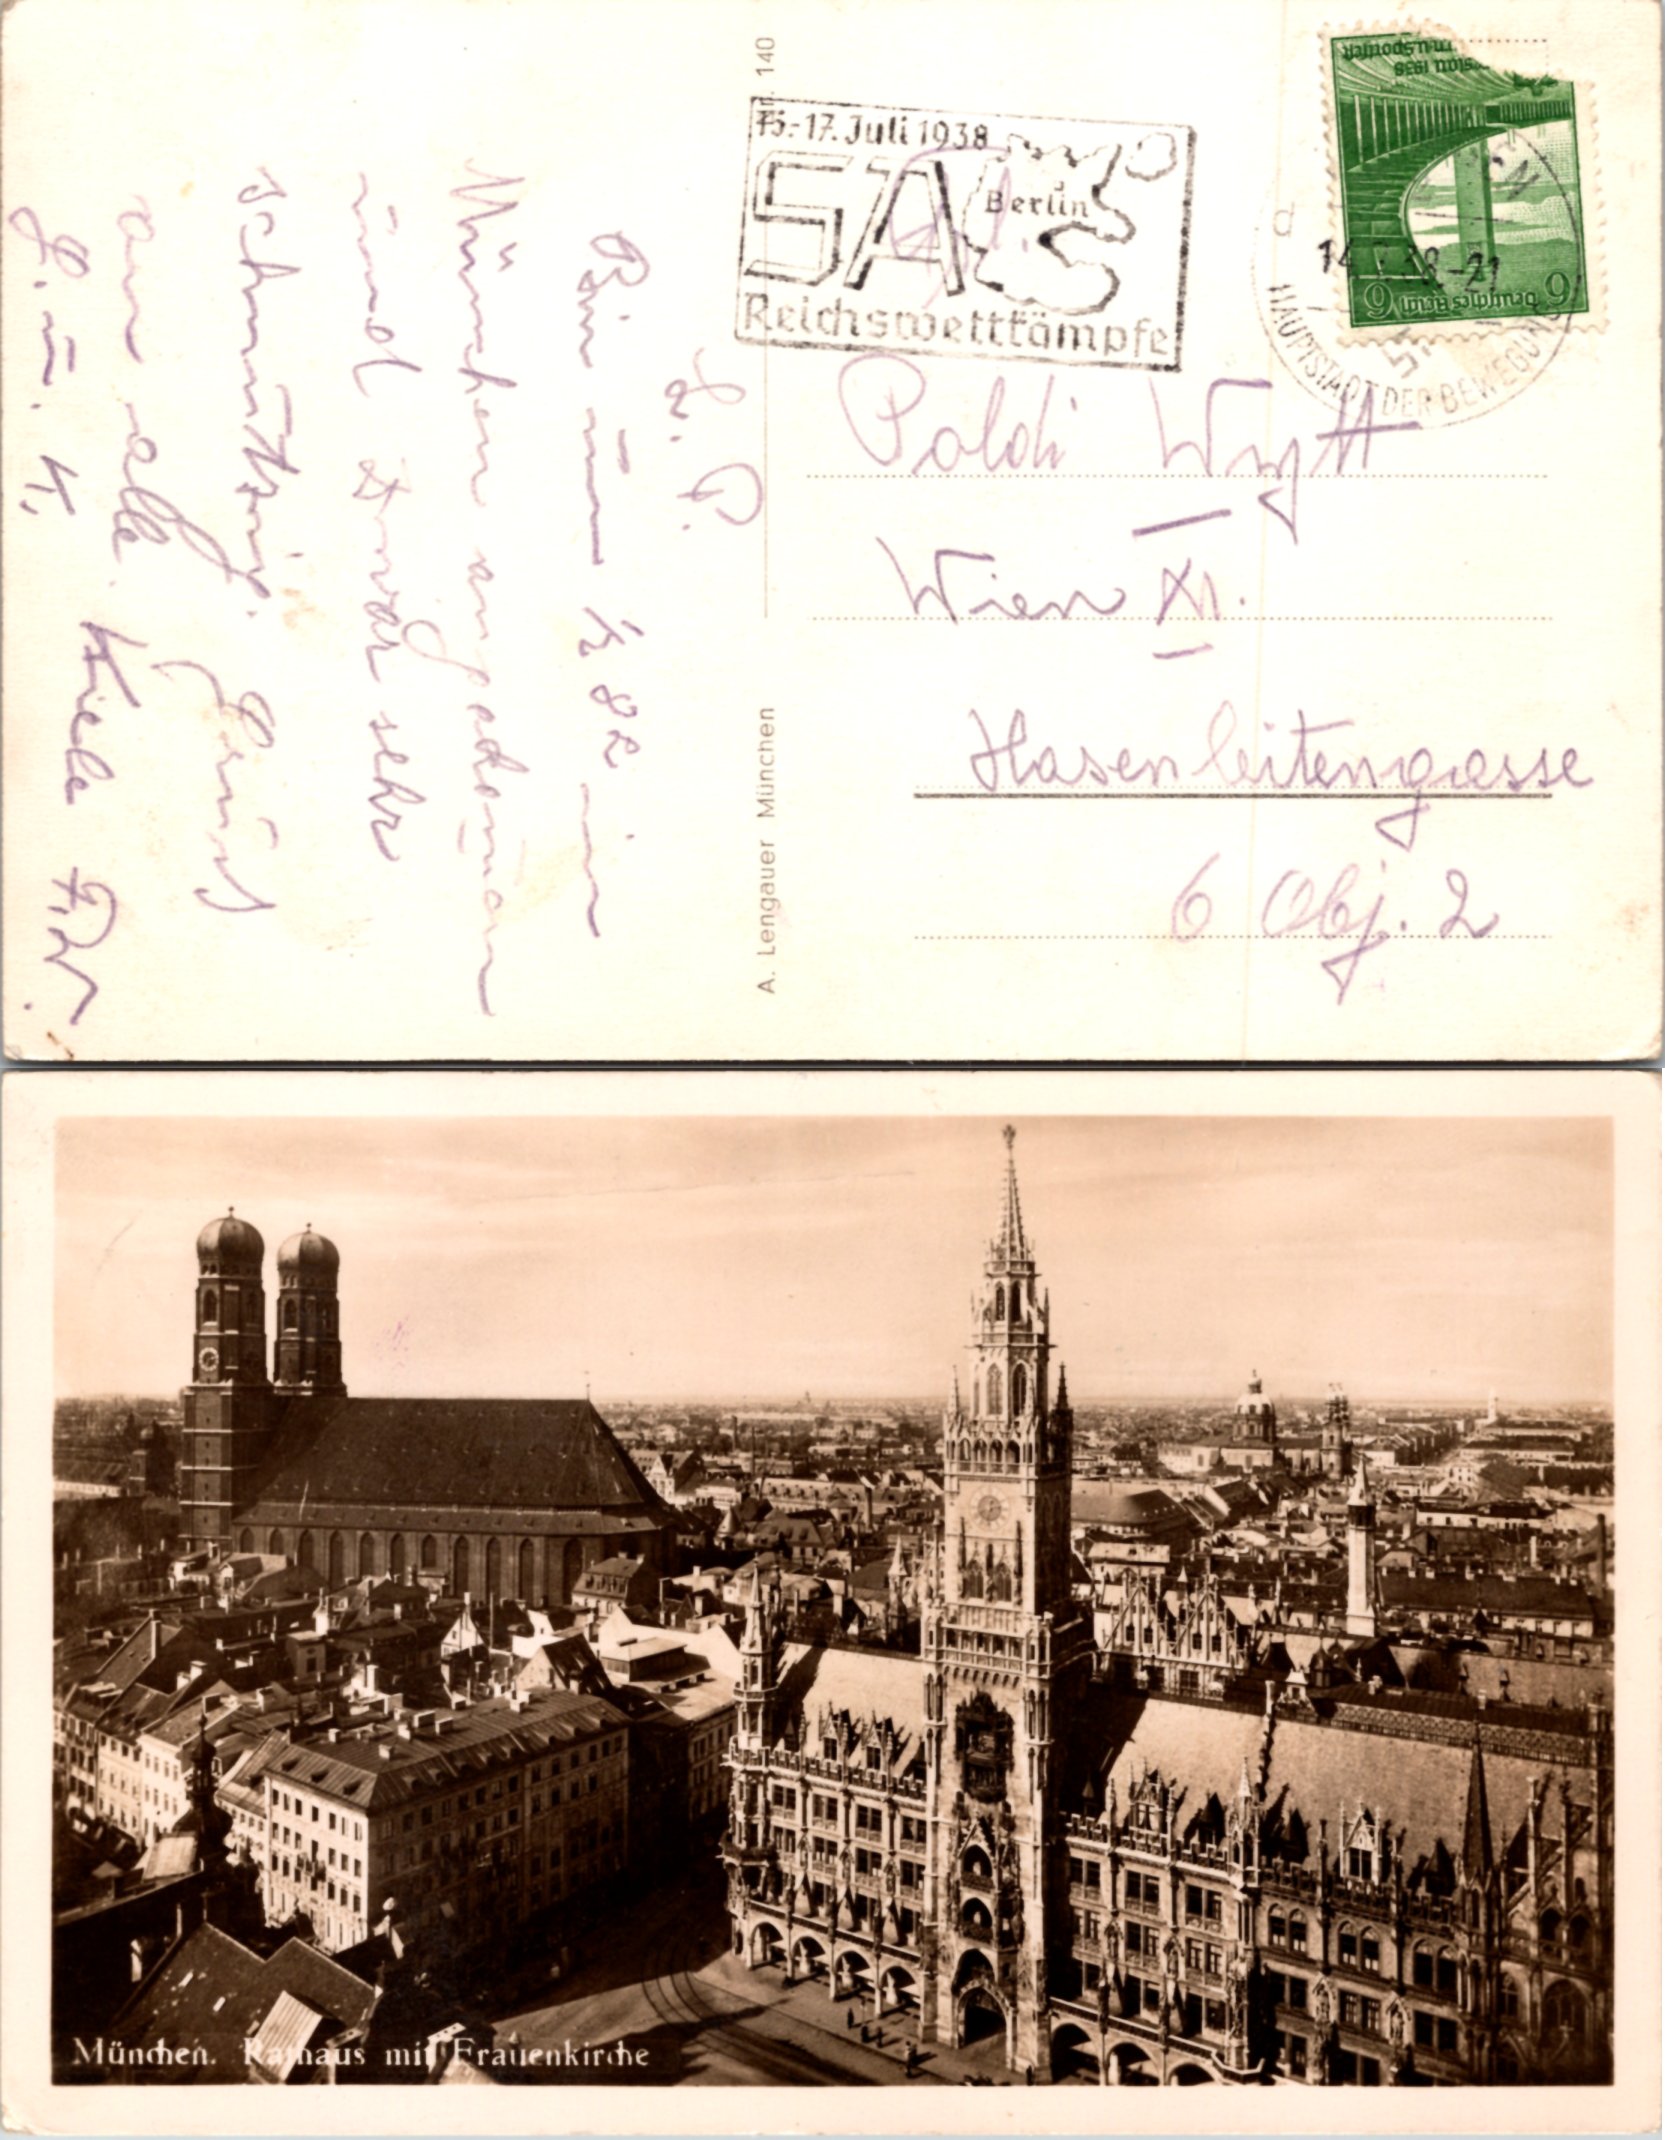 L. P.
Bin um ½ 8h in
München angekommen
und zwar sehr
schmutzig. Gruss
an alle.
L. u. K.
Nr. 140
A. Lengauer München
15.-17. Juli 1938
SA
Berlin
Reichswettkämpfe
1938
Deutsches Reich
6 6
d
14.7.38.-21
HAUPTSTADT DER BEWEGUNG
Poldi Wytt
Wien XI.
Hasenleitengasse
6 Obj. 2
München. Rathaus mit Frauenkirche